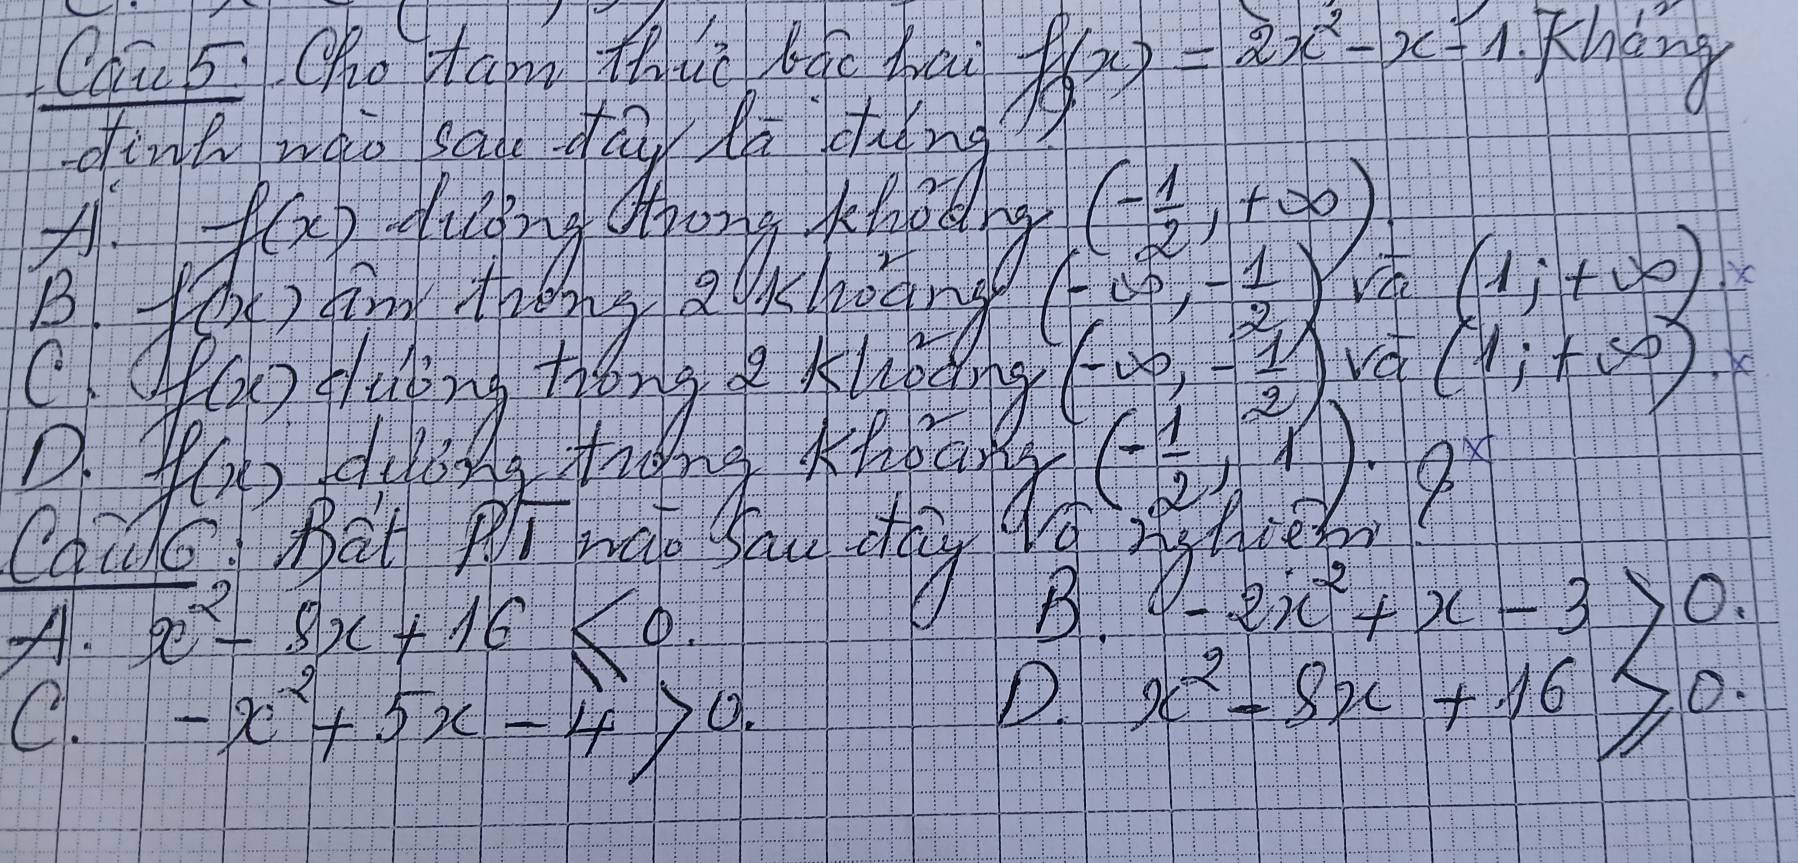 Câu 5: Cho tam thức bậc hai f(x) = 2x² - x - 1. Khẳng
định nào sau đây là đúng?
A. f(x) dương trong khoảng (-1/2, +∞).
B. f(x) âm trong 2 khoảng (-∞, -1/2) và (1; +∞). x
C. f(x) dương trong 2 khoảng (-∞, -1/2) và (1; +∞). x
D. f(x) dương trong khoảng (-1/2, 1). x
Câu 6: Bất PT nào sau đây vô nghiệm?
A. x² - 8x + 16 ≤ 0. B. -2x² + x - 3 > 0.
C. -x² + 5x - 4 > 0. D. x² - 8x + 16 ≥ 0.